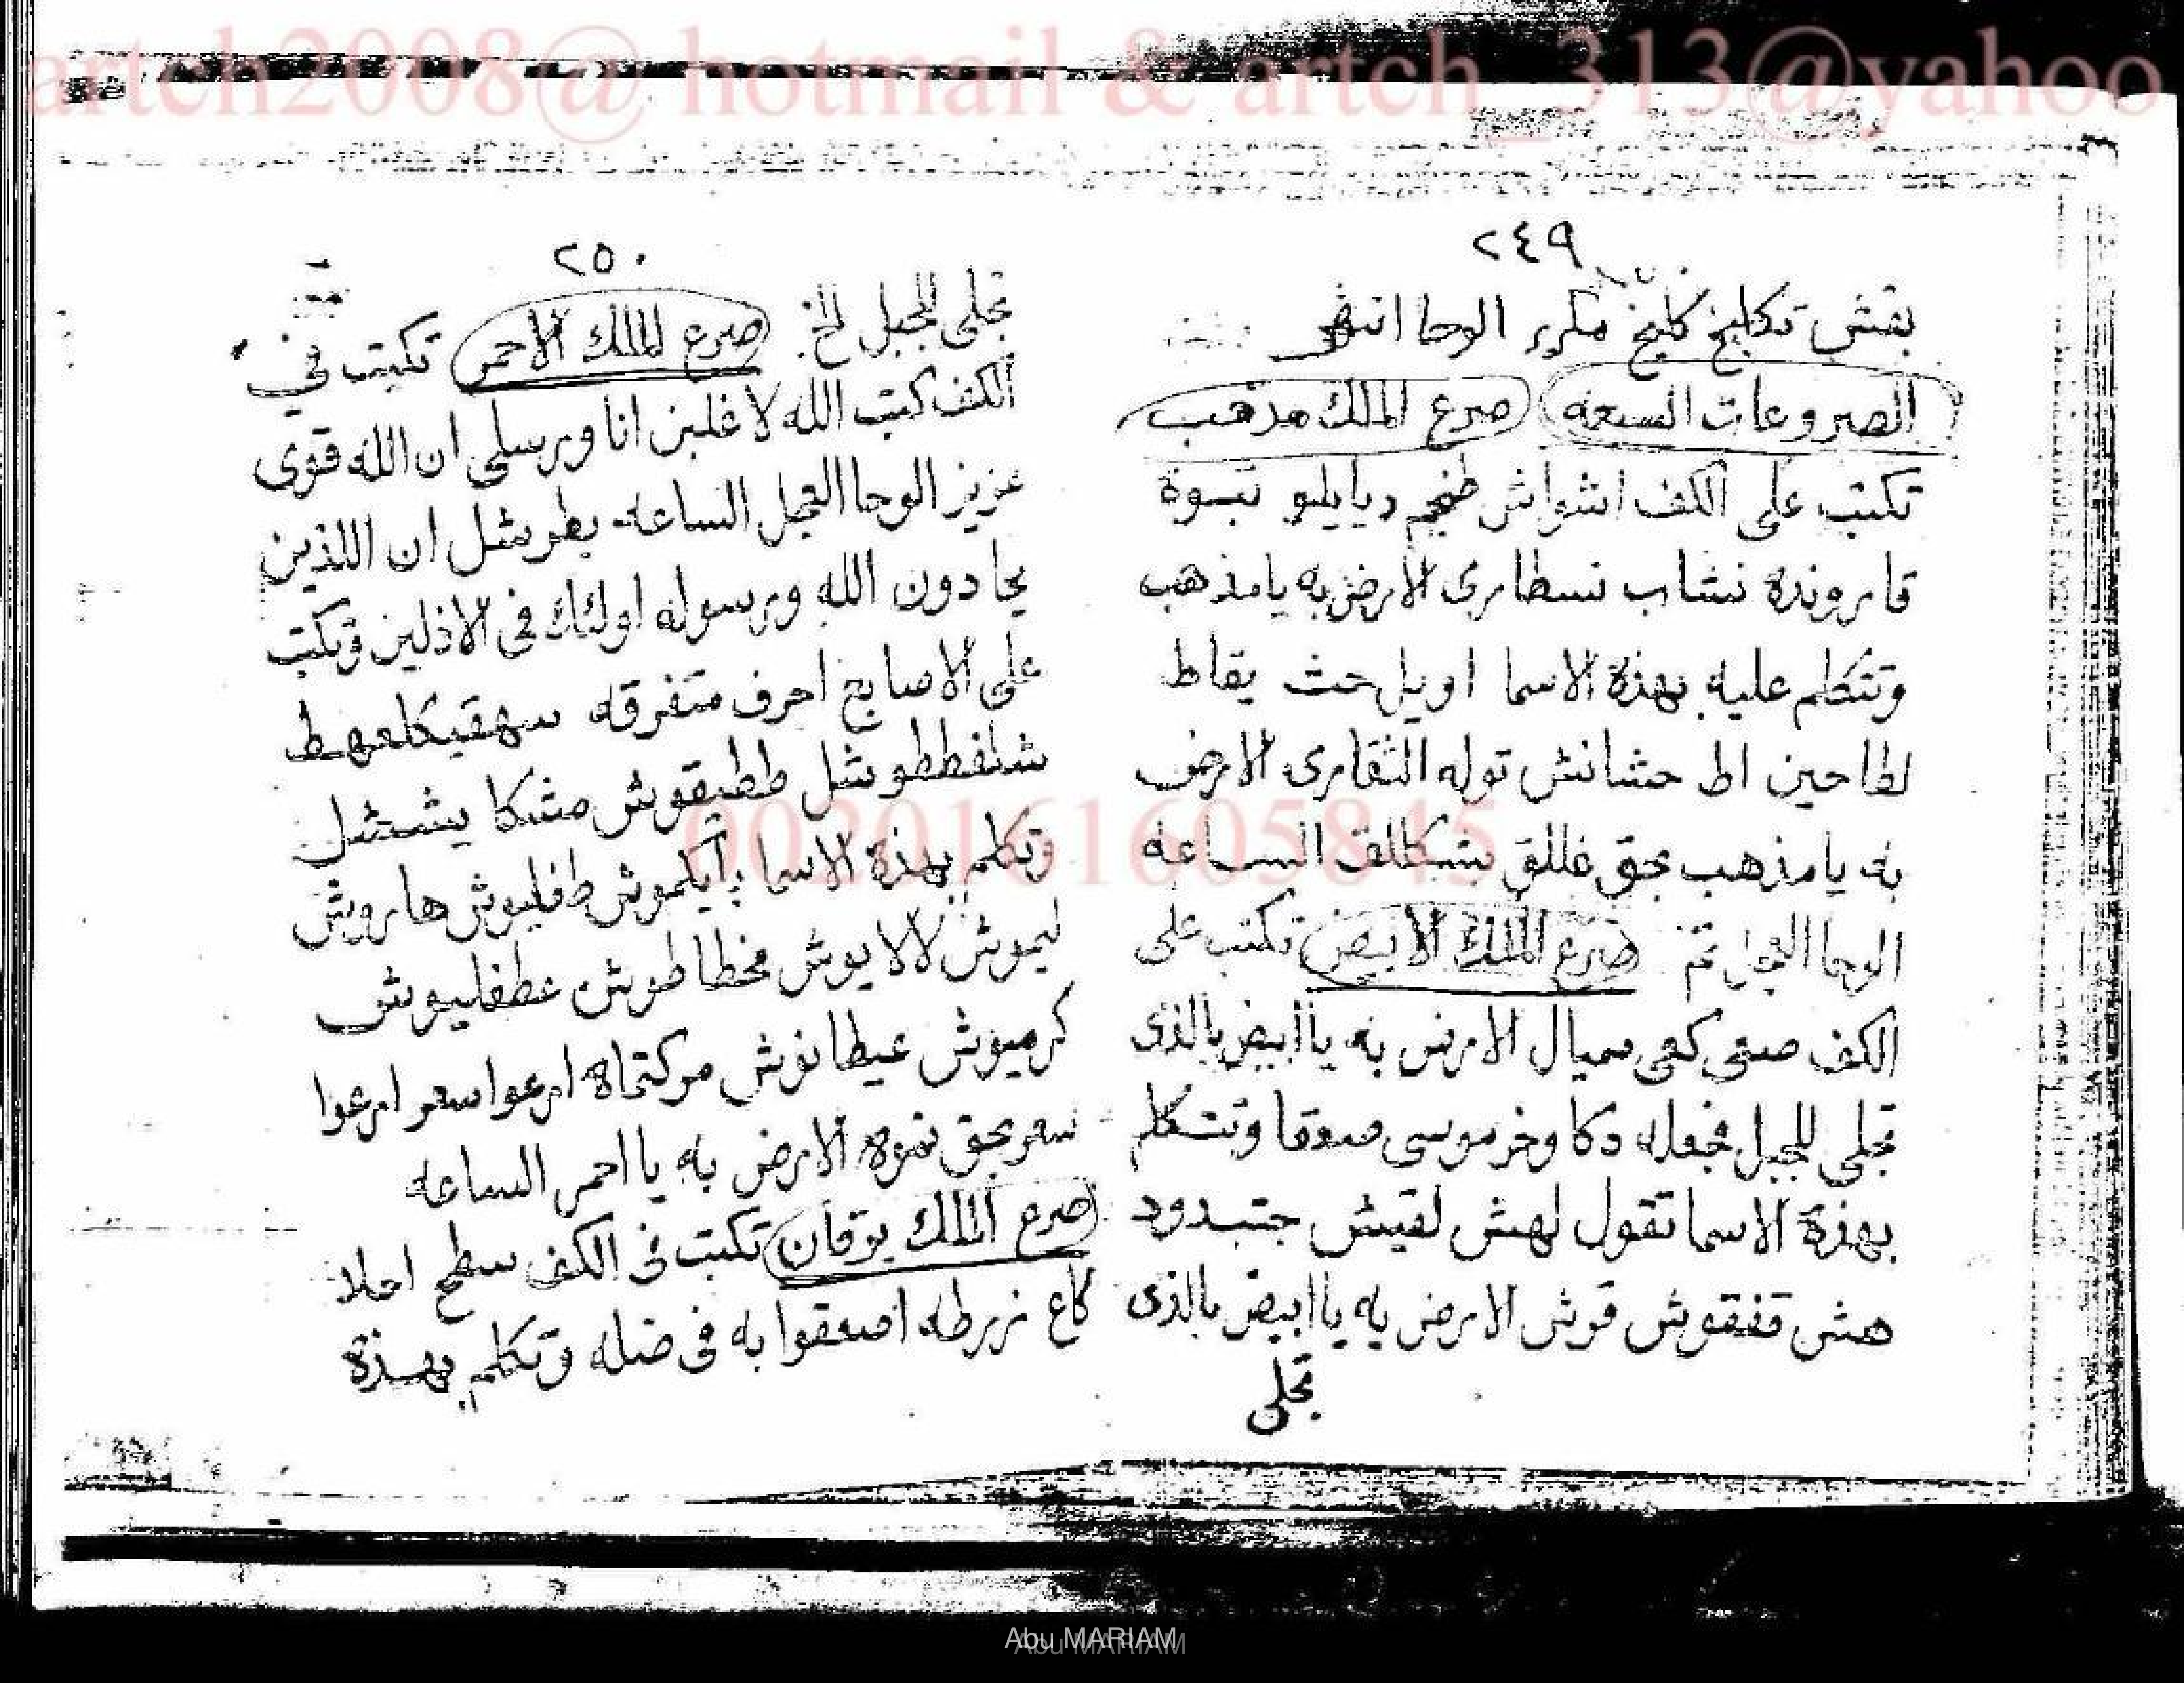 artch2008@ hotmail & artch_313@yahoo
٢٤٩
بقش تكليخ كليخ مكرر الوحا انتهى
الصروعات السبعه صرع الملك مذهب
تكتب على الكف اشواش طخج ديايليو تبسوة
قاروندة نشاب نسطارى الارض به يا مذهب
وتتكلم عليه بهذة الاسما اويل حث يقاط
لطاحين اط حشانش توله الثقارى الارض
به يا مذهب بحق غللق بشكالف الساعه
الوحا العجل تم صرع الملك الابيض تكتب على
الكف صعى كعى سميال الارض به يا ابيض بالذى
تجلى للجبل فجعله دكا وخر موسى صعقا وتتكلم
بهذة الاسما تقول لهش لقيش جتبدود
هش قفقوش قوش الارض به يا ابيض بالذى
تجلى
٢٥٠
تجلى للجبل الخ. صرع الملك الاحمر تكتب في
الكف كتب الله لاغلبن انا ورسلى ان الله قوى
عزيز الوحا العجل الساعه بطر شل ان اللذين
يحادون الله ورسوله اولئك فى الاذلين وتكتب
على الاصابع احرف متفرقه سهقيكلعهط
شلفططوشل ططيقوش مشكا يششل
وتكلم بهذة الاسما ايكموش طفليوش هاروش
ليموش لالايوش فخطاطوش عطفليوش
كرميوش عيطانوش مركتماه ارعوا سعر ارعوا
سعر بحق نموه الارض به يا احمر الساعه
صرع الملك برقان تكتب فى الكف سطح احلا
كاع زرطه اصعقوا به فى ضله وتكلم بهذة
00201161605845
Abu MARIAM